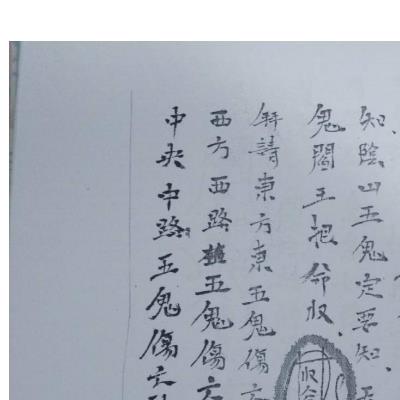 知、陰山五鬼定要知、
鬼閻王把命收、
拜請東方東五鬼傷
西方西路五鬼傷
中央中路五鬼傷